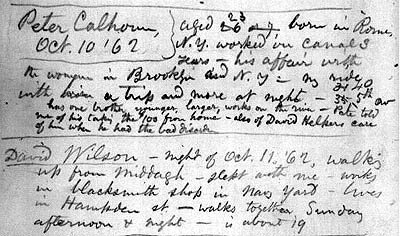 Peter Calhoun, aged 23, born in Rome,
Oct. 10 '62 N.Y. worked on canal 3
years, his affair with
the woman in Brooklyn and N.Y. — my ride
with him a trip and more at night — 40 5th av
has one brother younger, larger, works on the river — Pete told
me of his taking the 100 from home — also of David Helpers care
of him when he had the bad disorder
David Wilson — night of Oct. 11, '62, walking
up from Middagh — slept with me — works
in blacksmith shop in Navy Yard — lives
in Hampden st. — walks together Sunday
afternoon & night — is about 19